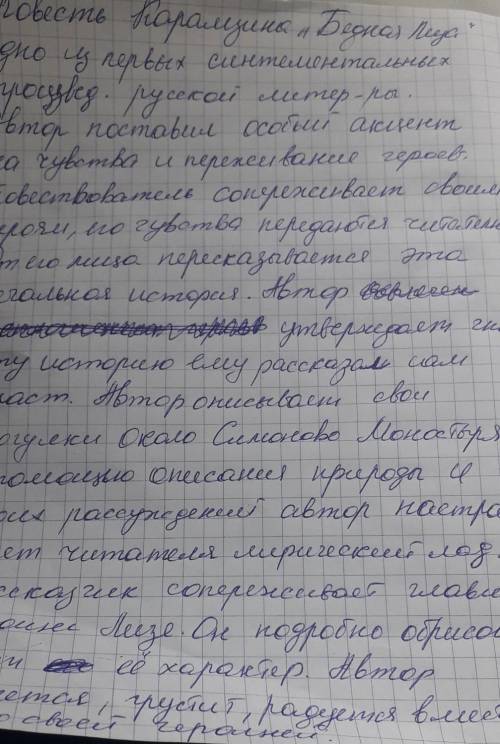 Повесть Карамзина „Бедная Лиза"
дно из первых синтементальных
произвед. русской литер-ры.
Автор поставил особый акцент
на чувства и переживание героев.
Повествователь сопереживает своим
героям, его чувства передаются читателю
от его лица пересказывается эта
печальная история. Автор
утверждает
ту историю ему рассказал сам
раст. Автор описывает свои
рогулки около Симоново Монастыря
помощью описания природы и
оих рассуждений автор настра
ает читателя лирический лад.
ссказчик сопереживает главн
оине Лизе. Он подробно обрисов
ли её характер. Автор
ется, грустит, радуется вмест
со своей героиней.